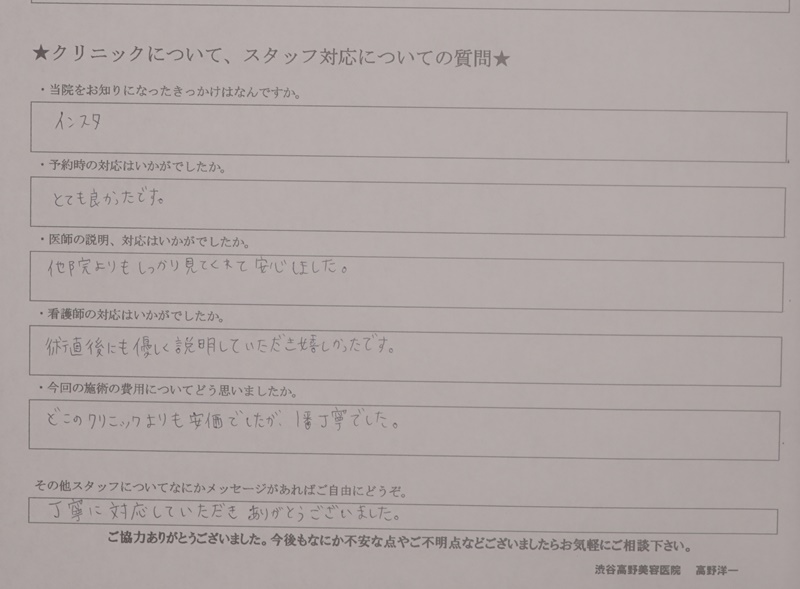 ★クリニックについて、スタッフ対応についての質問★
・当院をお知りになったきっかけはなんですか。
インスタ
・予約時の対応はいかがでしたか。
とても良かったです。
・医師の説明、対応はいかがでしたか。
他院よりもしっかり見てくれて安心しました。
・看護師の対応はいかがでしたか。
術直後にも優しく説明していただき嬉しかったです。
・今回の施術の費用についてどう思いましたか。
どこのクリニックよりも安価でしたが、1番丁寧でした。
その他スタッフについてなにかメッセージがあればご自由にどうぞ。
丁寧に対応していただきありがとうございました。
ご協力ありがとうございました。今後もなにか不安な点やご不明点などございましたらお気軽にご相談下さい。
渋谷高野美容医院 高野洋一